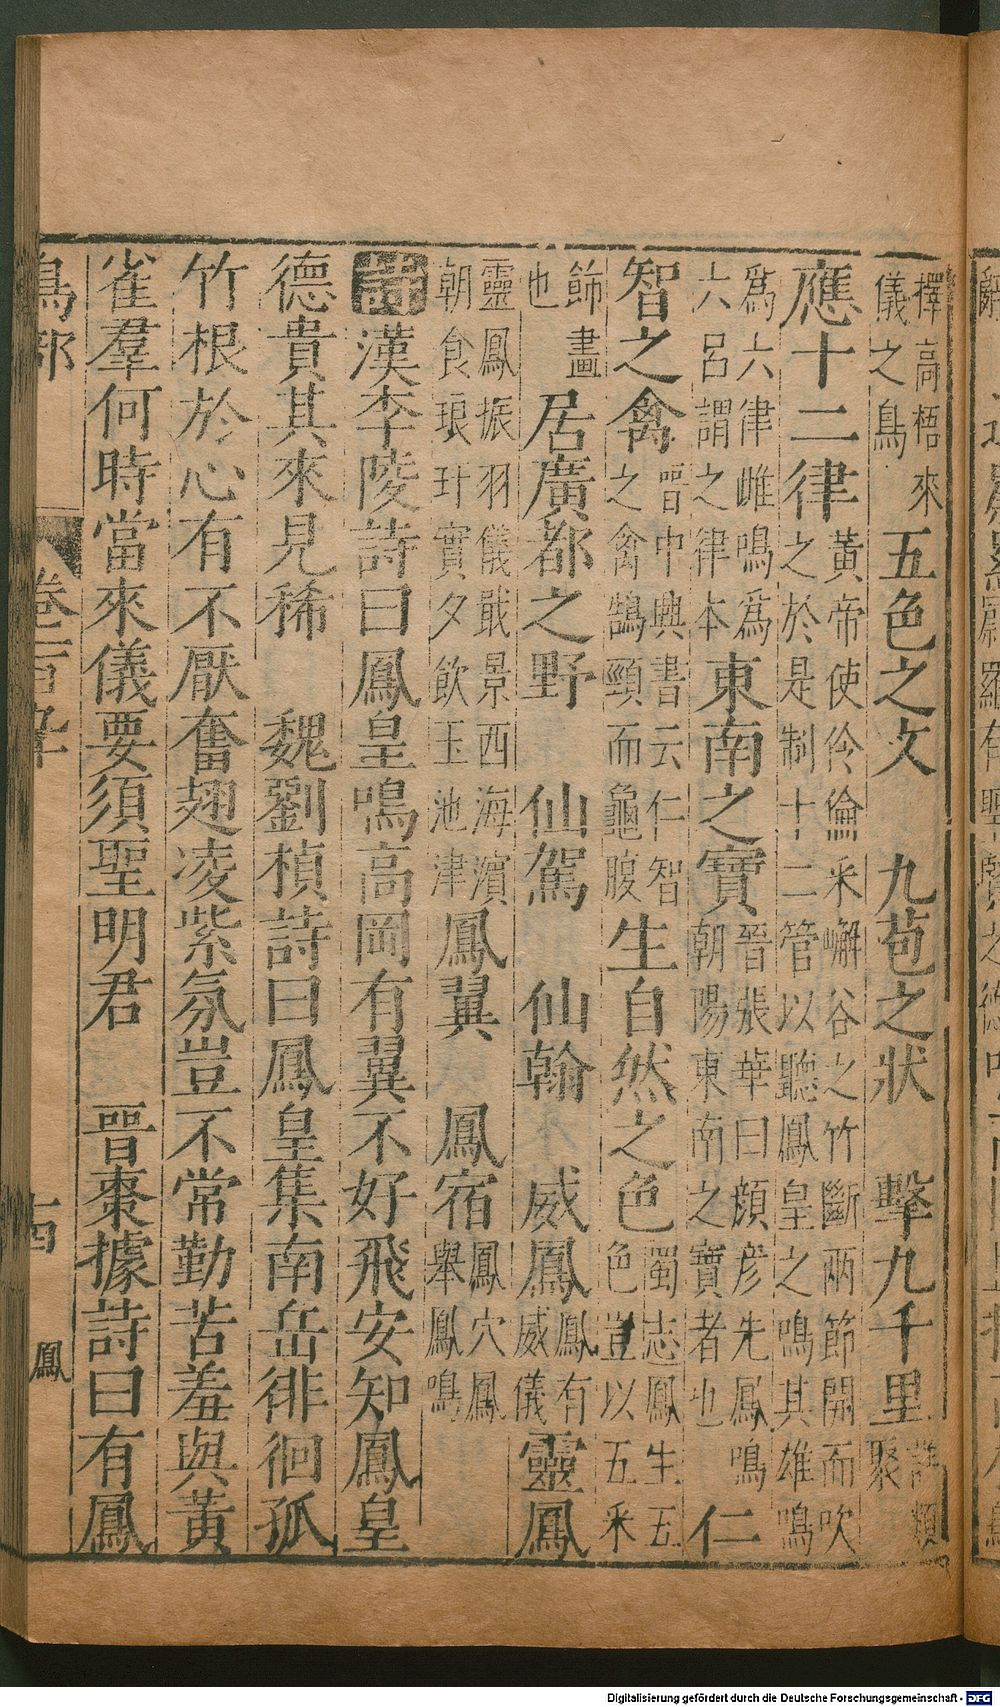 擇高梧來儀之鳥五色之文　九苞之狀　擊九千里許類聚
應十二律黃帝使伶倫采嶰谷之竹斷兩節開而吹之於是制十二管以聽鳳皇之鳴其雄鳴
爲六律雌鳴爲六呂謂之律本東南之寶晉張華曰顔彦先鳳鳴朝陽東南之寶者也仁
智之禽晉中興書云仁智之禽鵠頸而龜腹生自然之色蜀志鳳生五色豈以五采
飾畫也居廣都之野　仙駕　仙翰　威鳳鳳有威儀靈鳳
靈鳳振羽儀戢景西海濱朝食琅玕實夕飲玉池津鳳翼　鳳宿鳳穴鳳舉鳳鳴
詩漢李陵詩曰鳳皇鳴高岡有翼不好飛安知鳳皇
德貴其來見稀　魏劉楨詩曰鳳皇集南岳徘徊孤
竹根於心有不厭奮翅凌紫氛豈不常勤苦羞與黃
雀羣何時當來儀要須聖明君　晉棗據詩曰有鳳
鳥部　卷二百九十　十四　鳳
Digitalisierung gefördert durch die Deutsche Forschungsgemeinschaft - DFG